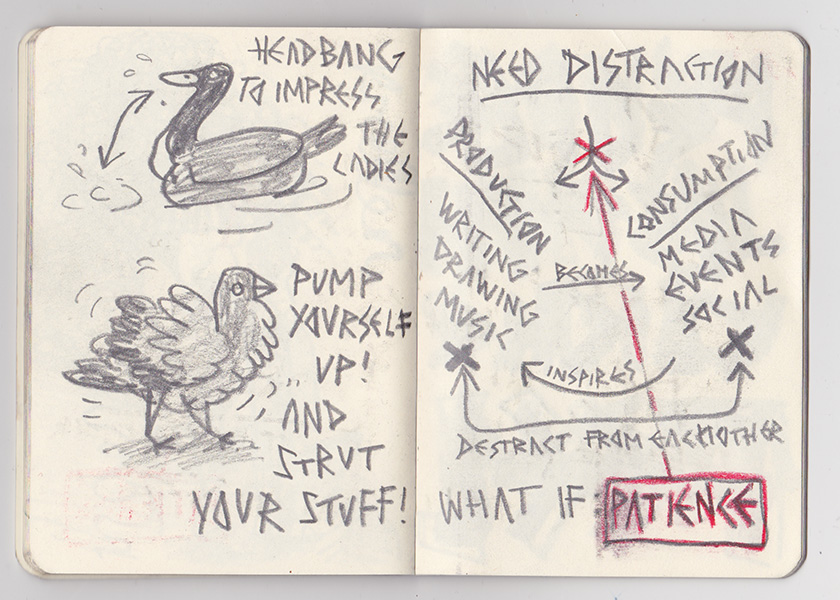 HEADBANG
TO IMPRESS
THE
LADIES
PUMP
YOURSELF
UP!
AND
STRUT
YOUR STUFF!
NEED DISTRACTION
PRODUCTION
WRITING
DRAWING
MUSIC
BECOMES
CONSUMPTION
MEDIA
EVENTS
SOCIAL
INSPIRES
DESTRACT FROM EACHOTHER
WHAT IF PATIENCE